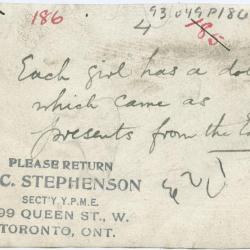 186
93.049P/86
4
185
Each girl has a do
which came as
presents from the E
PLEASE RETURN
C. STEPHENSON
SECT'Y Y.P.M.E.
99 QUEEN ST., W.
TORONTO, ONT.